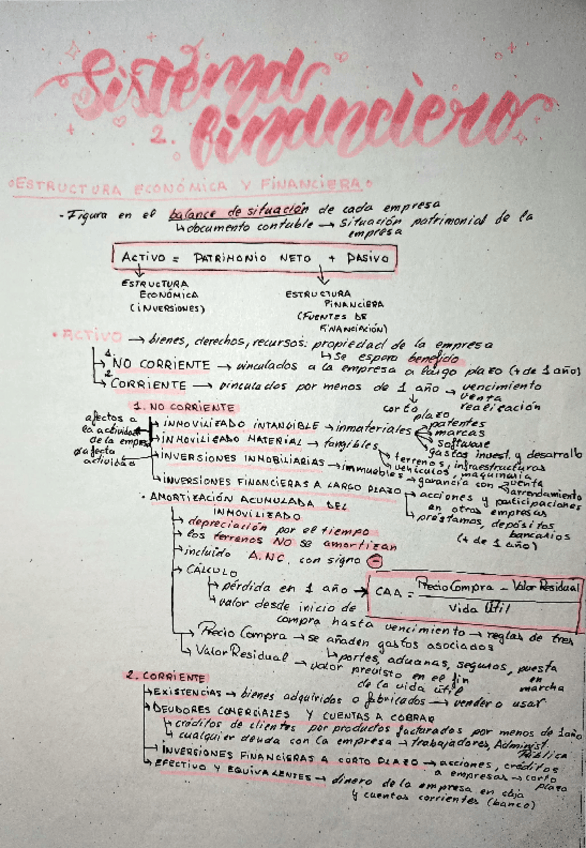 Sistema
2. financiero
ESTRUCTURA ECONÓMICA Y FINANCIERA
- Figura en el balance de situación de cada empresa
↳ documento contable → situación patrimonial de la
empresa
ACTIVO = PATRIMONIO NETO + PASIVO
ESTRUCTURA
ECONÓMICA
(INVERSIONES)
ESTRUCTURA
FINANCIERA
(FUENTES DE
FINANCIACIÓN)
• ACTIVO → bienes, derechos, recursos: propiedad de la empresa
↳ se espera beneficio
1. NO CORRIENTE → vinculados a la empresa a largo plazo (+ de 1 año)
2. CORRIENTE → vinculados por menos de 1 año → vencimiento
venta
realización
corto plazo
1. NO CORRIENTE
afectos a
la actividad
de la empresa
INMOVILIZADO INTANGIBLE → inmateriales
patentes
marcas
software
gastos invest. y desarrollo
INMOVILIZADO MATERIAL → tangibles
terrenos, infraestructuras
vehículos, maquinaria
actividad
INVERSIONES INMOBILIARIAS → inmuebles → garancia con
venta
arrendamiento
INVERSIONES FINANCIERAS A LARGO PLAZO
→ acciones y participaciones
en otras empresas
→ préstamos, depósitos
bancarios
(+ de 1 año)
• AMORTIZACIÓN ACUMULADA DEL
INMOVILIZADO
→ depreciación por el tiempo
→ los terrenos NO se amortizan
→ incluido A.NC. con signo -
→ CÁLCULO
↳ pérdida en 1 año → CAA = Precio Compra - Valor Residual
Vida Útil
↳ valor desde inicio de
compra hasta vencimiento → reglas de tres
→ Precio Compra → se añaden gastos asociados
↳ portes, aduanas, seguros, puesta
en
marcha
→ Valor Residual → valor previsto en el fin
de la vida útil
2. CORRIENTE
→ EXISTENCIAS → bienes adquiridos o fabricados → vender o usar
→ DEUDORES COMERCIALES Y CUENTAS A COBRAR
↳ créditos de clientes por productos facturados por menos de 1 año
↳ cualquier deuda con la empresa → trabajadores, Administ.
Pública
→ INVERSIONES FINANCIERAS A CORTO PLAZO → acciones, créditos
a empresas → corto
plazo
→ EFECTIVO Y EQUIVALENTES → dinero de la empresa en caja
y cuentas corrientes (banco)